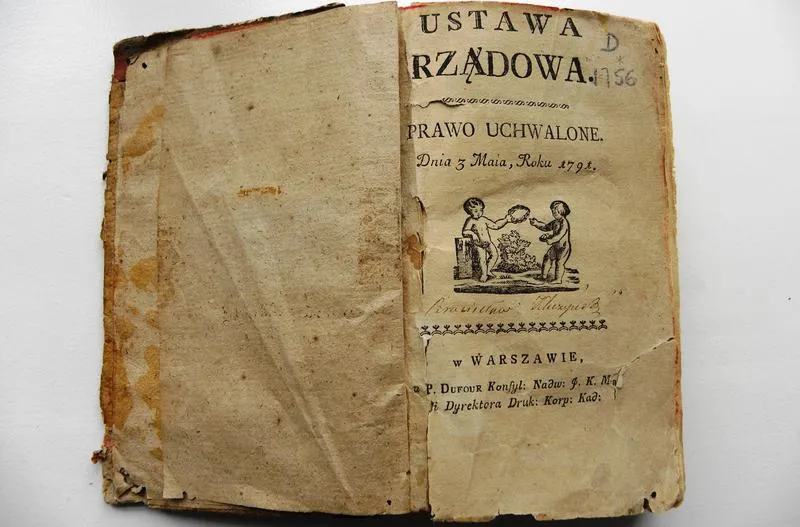 USTAWA
D
RZĄDOWA.
1756
PRAWO UCHWALONE.
Dnia 3 Maia, Roku 1791.
w WARSZAWIE,
P. DUFOUR Konsyl: Nadw: J. K. M.
Dyrektora Druk: Korp: Kad: